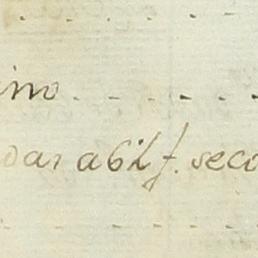 ino
dar a 62 f. seco